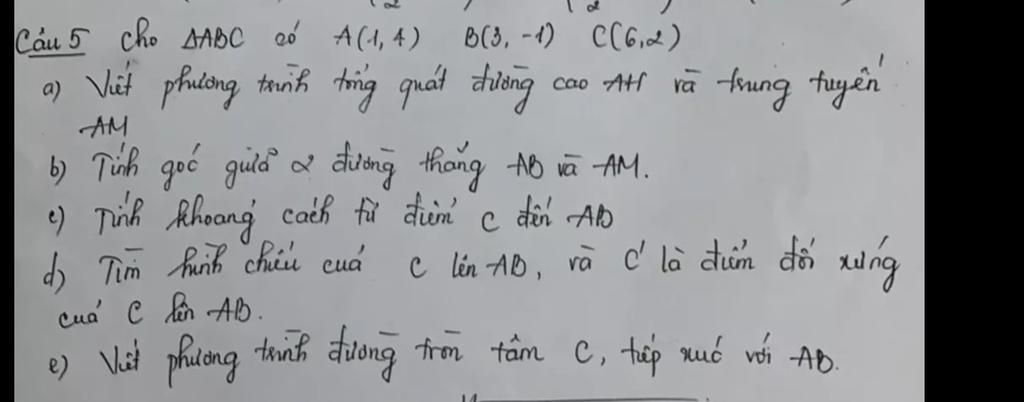 Câu 5 Cho ΔABC có A(1,4) B(3,-1) C(6,2)
a) Viết phương trình tổng quát đường cao AH và trung tuyến
AM
b) Tính góc giữa 2 đường thẳng AB và AM.
c) Tính khoảng cách từ điểm C đến AB
d) Tìm hình chiếu của C lên AB, và C' là điểm đối xứng
của C lên AB.
e) Viết phương trình đường tròn tâm C, tiếp xúc với AB.